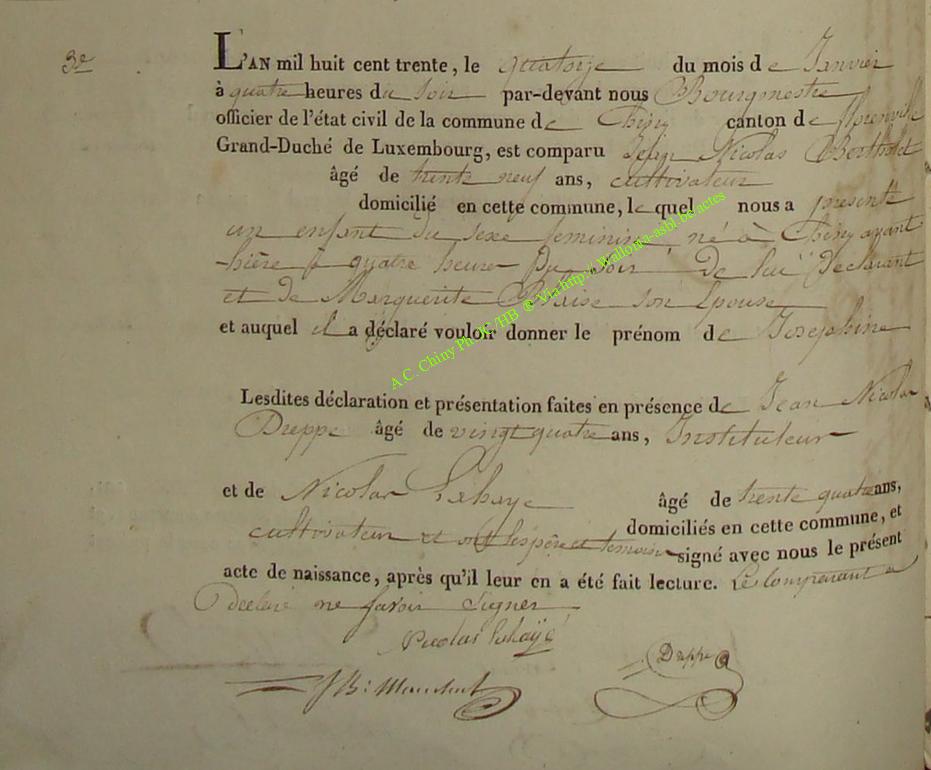 3e
L'AN mil huit cent trente, le quatorze du mois de Janvier
à quatre heures du soir par-devant nous Bourgmestre
officier de l'état civil de la commune de Chiny canton de florenville
Grand-Duché de Luxembourg, est comparu Jean Nicolas Bertholet
âgé de trente neuf ans, cultivateur
domicilié en cette commune, le quel nous a présenté
un enfant du sexe feminin, né à Chiny avant
hière à quatre heures Du soir De lui déclarant
et de Marguerite Blaise son Epouse
et auquel il a déclaré vouloir donner le prénom de Josephine
Lesdites déclaration et présentation faites en présence de Jean Nicolas
Dreppe âgé de vingt quatre ans, Instituteur
et de Nicolas Lahaye âgé de trente quatre ans,
cultivateur domiciliés en cette commune, et
et ont les père et temoins signé avec nous le présent
acte de naissance, après qu'il leur en a été fait lecture. Le Comparant a
Declaré ne savoir Signer
Nicolas Lahaÿe
Dreppe
JB:
A.C. Chiny Ph JK /HB @ Via http://Wallonia-asbl.be/actes